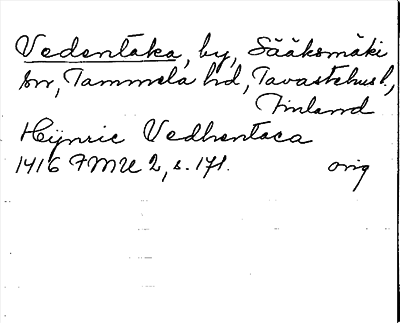 Vedentaka, by, Sääksmäki
sn, Tammela hd, Tavastehus l.,
Finland
Hÿnric Vedhentaca
1416 FMU 2, s. 171.   orig